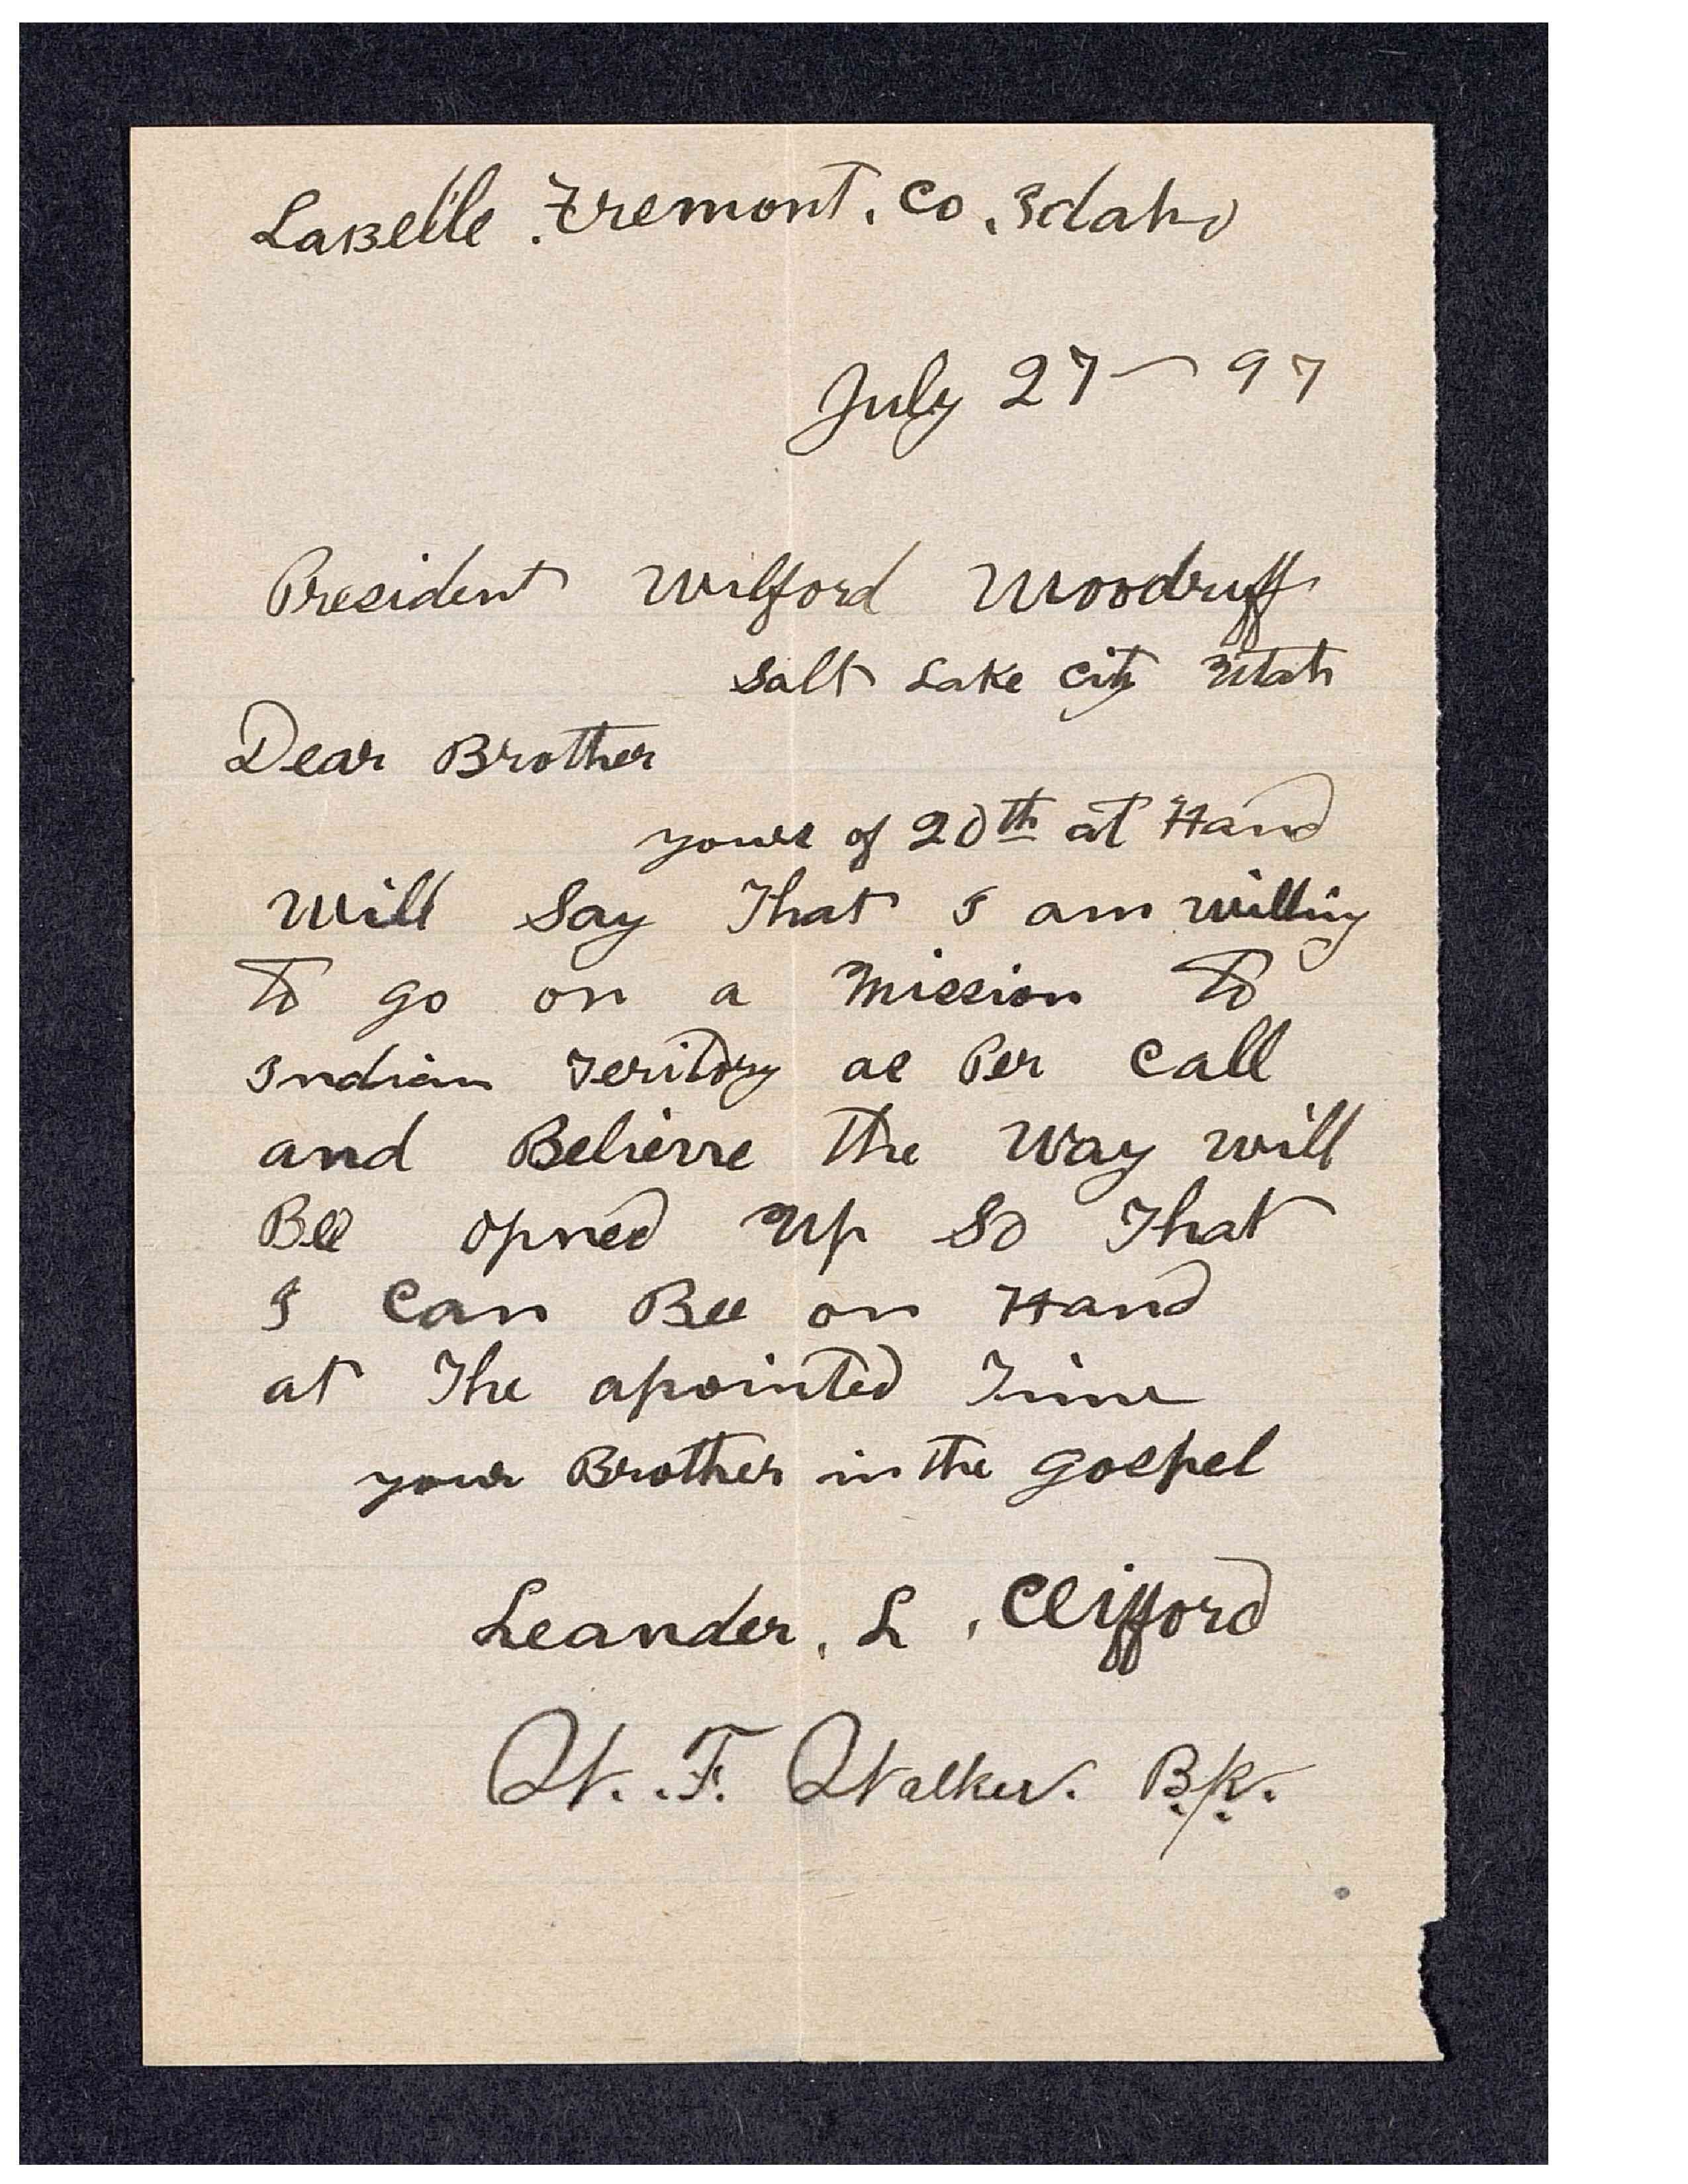 LaBelle. Fremont. Co. Idaho
July 27 - 97
President Wilford Woodruff
Salt Lake City Utah
Dear Brother
yours of 20th at Hand
Will Say That I am willing
To go on a Mission To
Indian Teritory as Per Call
and Believe the Way will
Bee opned Up So That
I Can Bee on Hand
at The apointed Time
your Brother in the gospel
Leander. L. Clifford
W. F. Walker. Bp.